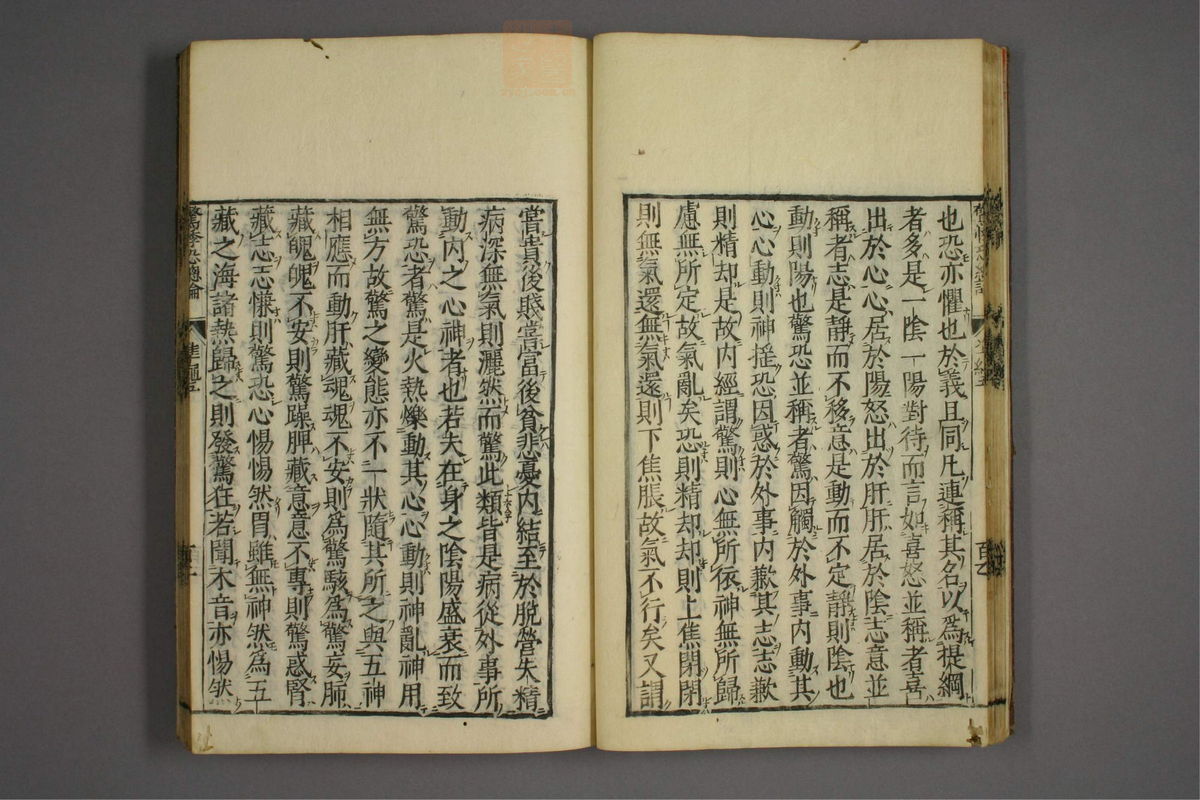 也恐亦懼也於義且同凡連稱其名以為提綱
者多是一陰一陽對待而言如喜怒並稱者喜
出於心心居於陽怒出於肝肝居於陰志意並
稱者志是靜而不移意是動而不定靜則陰也
動則陽也驚恐並稱者驚因觸於外事內動其
心心動則神搖恐因惑於外事內歉其志志歉
則精却是故內經謂驚則心無所依神無所歸
慮無所定故氣亂矣恐則精却却則上焦閉閉
則無氣還無氣還則下焦脹故氣不行矣又謂
嘗貴後賤嘗富後貧悲憂內結至於脫營失精
病深無氣則灑然而驚此類皆是病從外事所
動內之心神者也若夫在身之陰陽盛衰而致
驚恐者驚是火熱爍動其心心動則神亂神用
無方故驚之變態亦不一狀隨其所之與五神
相應而動肝藏魂魂不安則為驚駭為驚妄肺
藏魄魄不安則驚躁脾藏意意不專則驚惑腎
藏志志慊則驚恐心惕惕然胃雖無神然為五
藏之海諸熱歸之則發驚狂若聞木音亦惕然